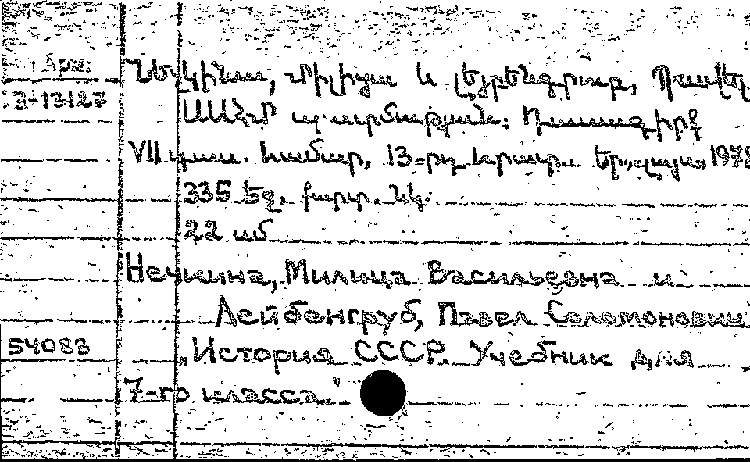 Արմ.
3-13127
Նեչկինա, Միլիցա և Լեյբենգրուբ, Պավել
ՍՍՀՄ պատմություն: Դասագիրք
VII դաս. համար, 13-րդ հրատ. Եր., Լույս, 197
335 էջ, քարտ. նկ.
22 սմ
Нечкина, Милица Васильевна и
Лейбенгруб, Павел Соломонович
54083
„История СССР. Учебник для
7-го класса."